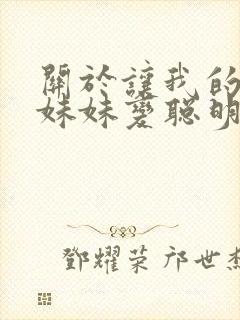 關於讓我的
妹妹變聰明
鄧耀荣 邝世杰